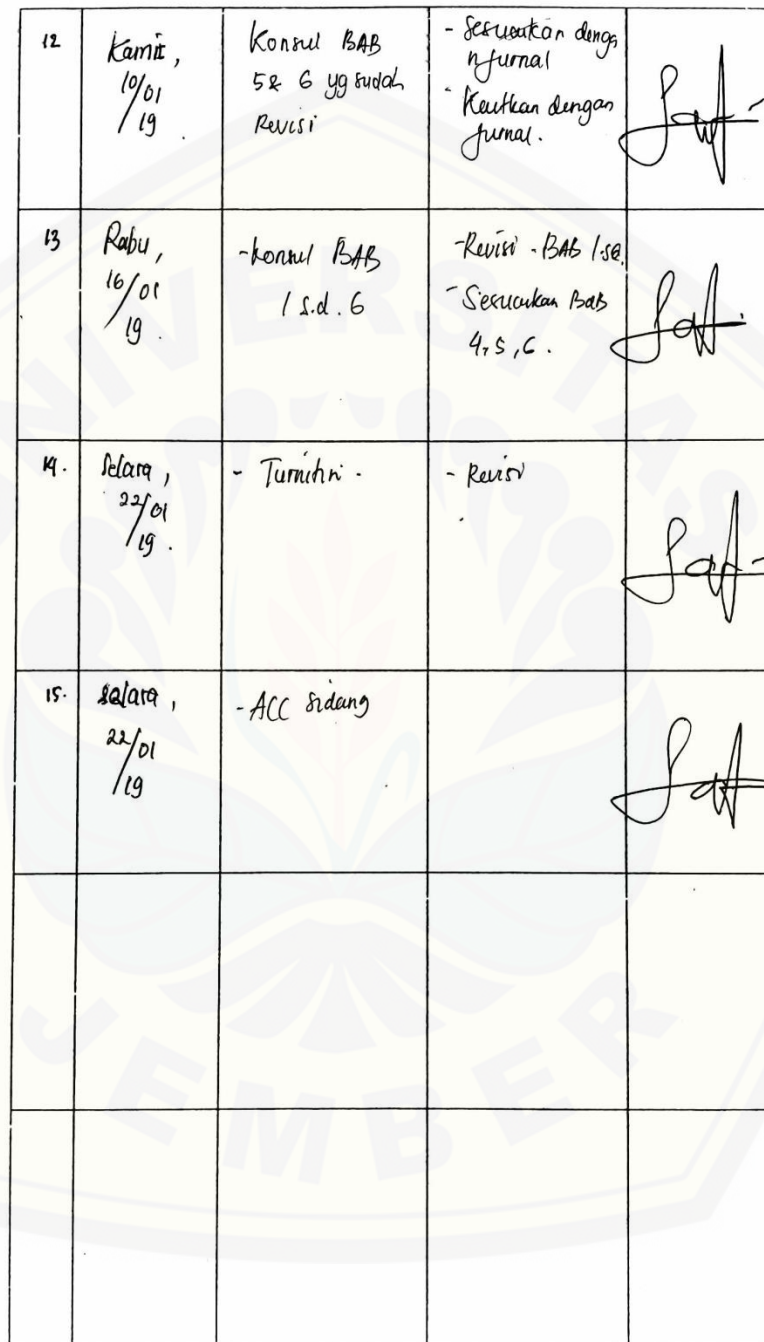 12
Kamis,
10/01
/19
Konsul BAB
5 & 6 yg sudah
Revisi
- Sesuaikan denga
n Jurnal
- Kaitkan dengan
jurnal.
13
Rabu,
16/01
/19.
- konsul BAB
1 s.d. 6
- Revisi - BAB 1-
- Sesuaikan Bab
4, 5, 6.
14.
Selasa,
22/01
/19.
- Turnitin -
- Revisi
15.
Selasa,
22/01
/19
- ACC Sidang
UNIVERSITAS
JEMBER